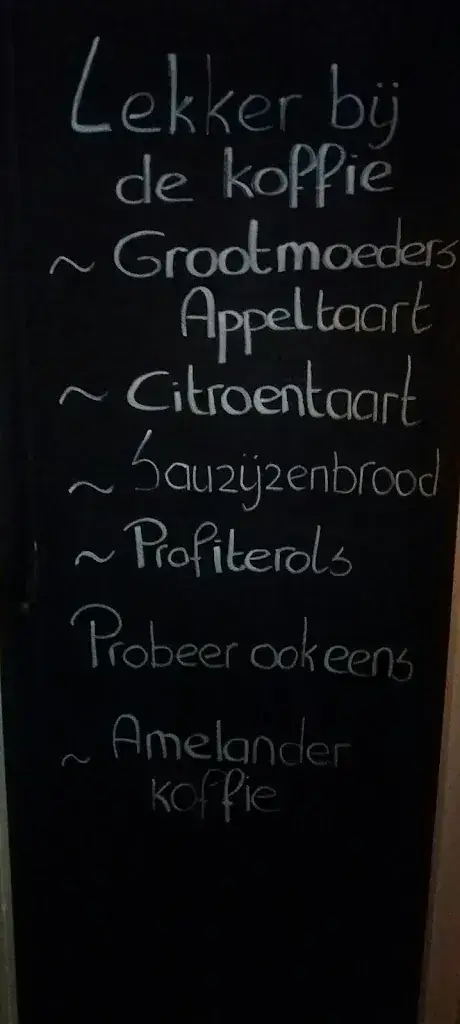 Lekker bij
de koffie
~ Grootmoeders
Appeltaart
~ Citroentaart
~ Sauzijzenbrood
~ Profiterols
Probeer ook eens
~ Amelander
koffie